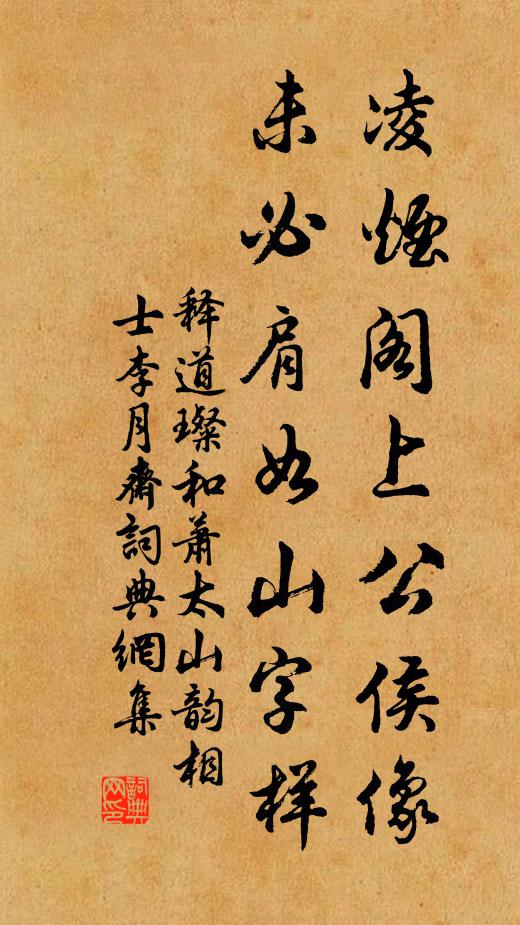 凌煙阁上公侯像
未必肩如山字样
释道璨和萧太山韵相
士李月齋詞典網集
詞典网印